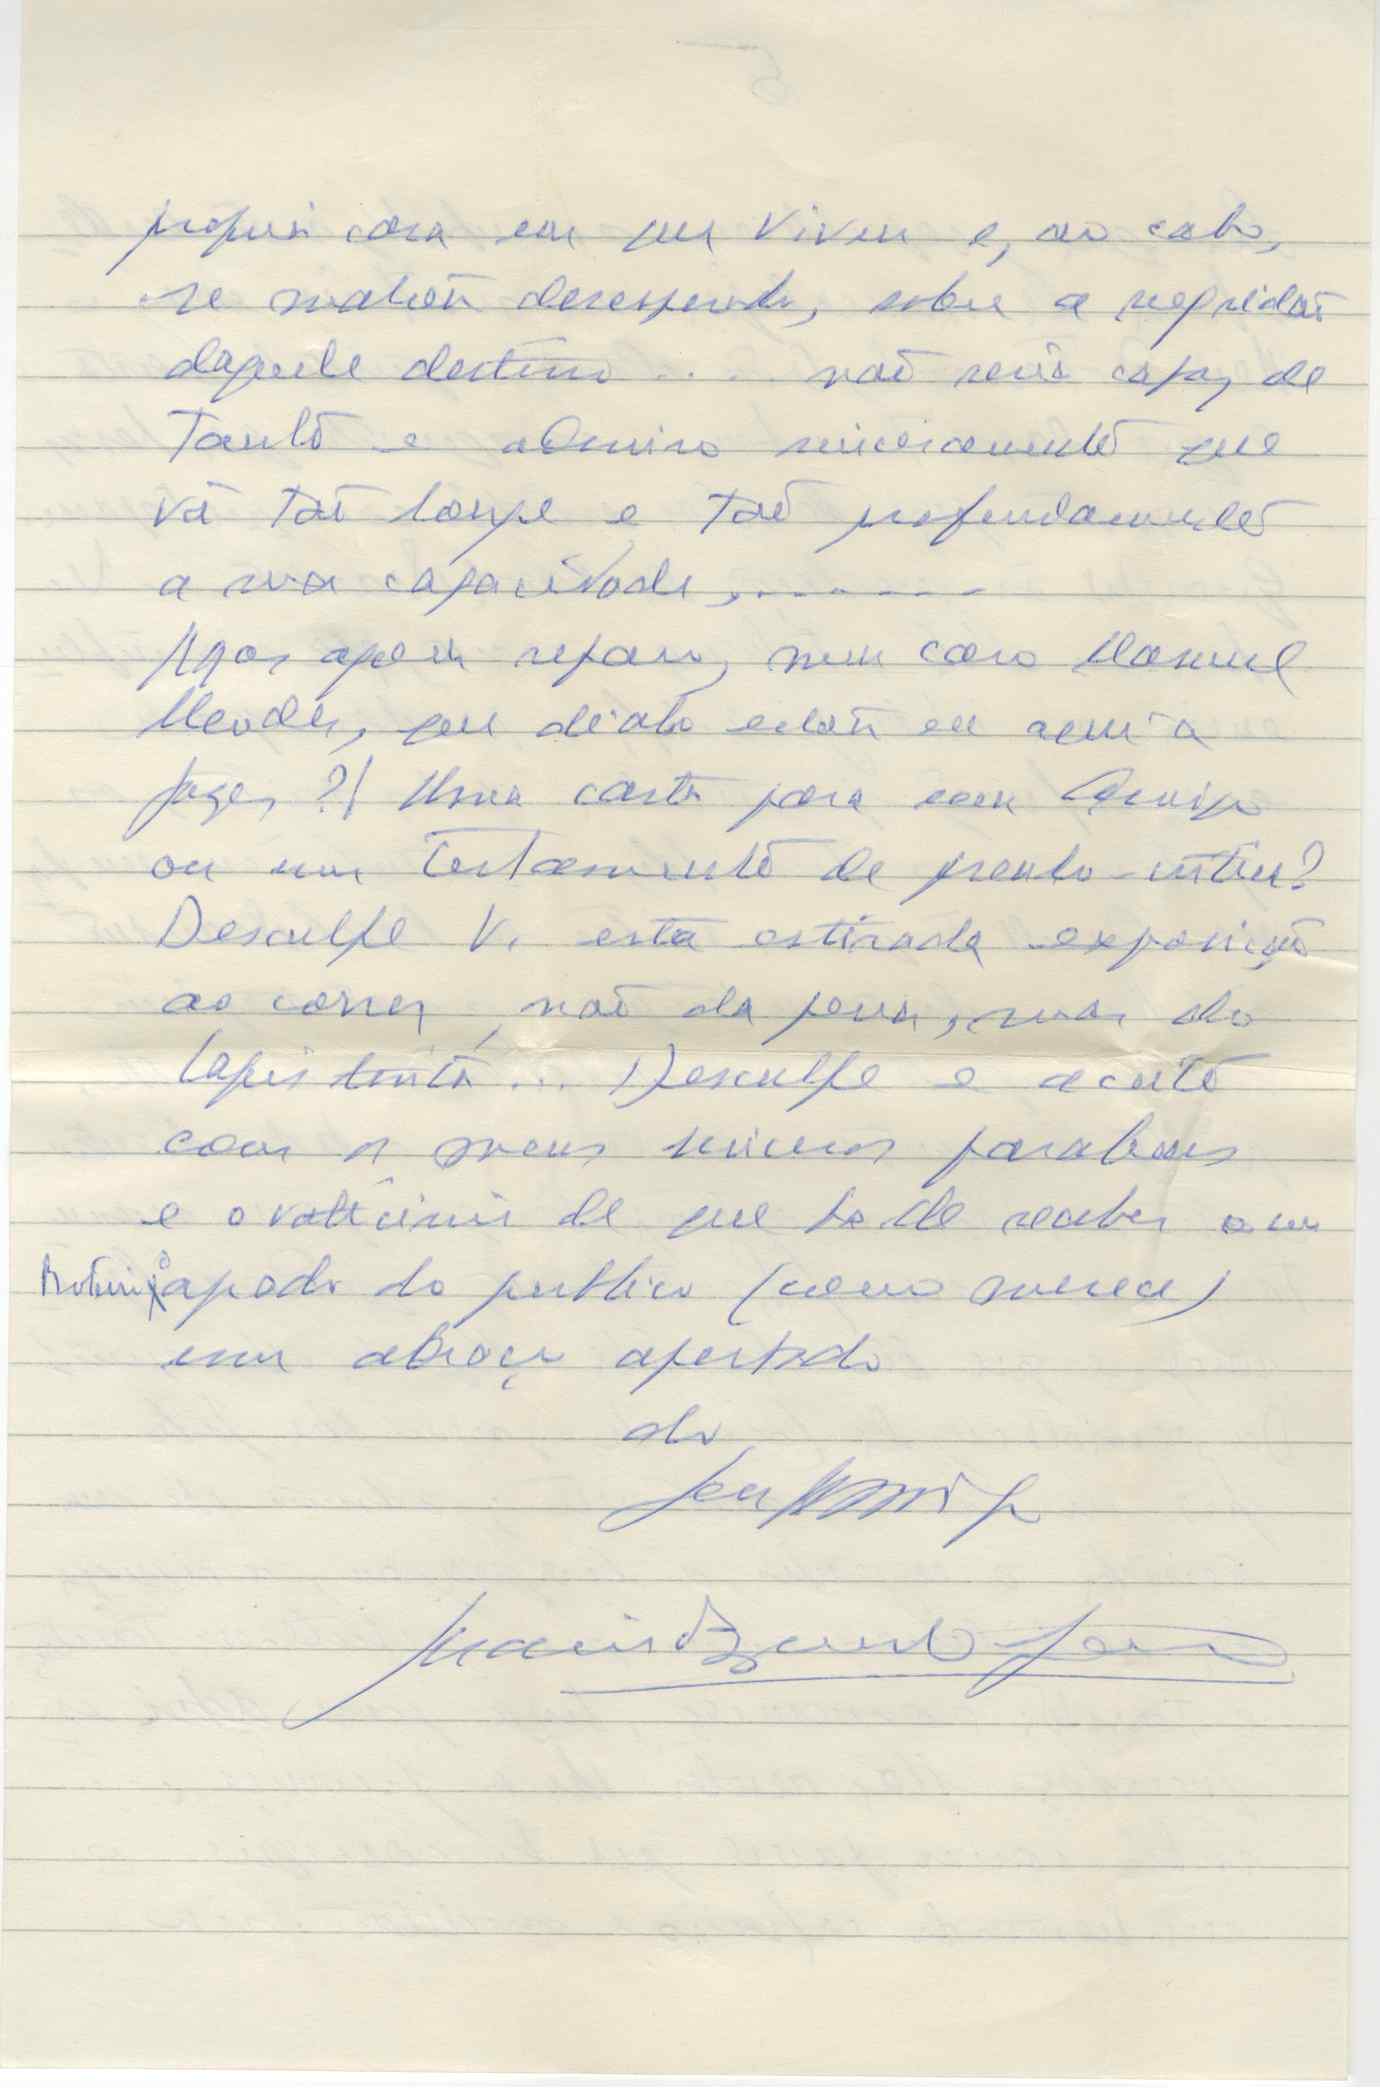 5
propria casa em que viveu e, ao cabo,
se matou desesperado, sobre a
daquele destino.... não seria capaz de
Tanto e admiro sinceramente que
vá tão longe e tão profundamente
a sua capacidade,.......
Mas agora reparo, meu caro Manuel
Mendes, que diabo estou eu aqui a
fazer ?! Uma carta para um Amigo
ou um Testamento de
Desculpe V. esta estirada exposição
ao correr, não da pena, mas do
lapis tinta... Desculpe e aceite
com os meus sinceros parabens
e o vaticinio de que ha de receber
do publico (como merece)
um abraço apertado
do
seu Amigo